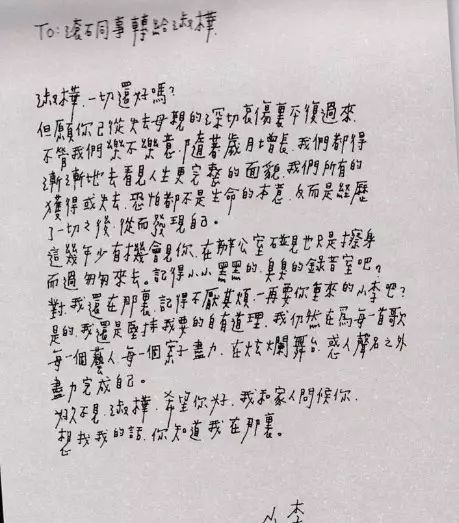 To:滾石同事轉給淑樺
淑樺,一切還好嗎?
但願你已從失去母親的深切哀傷裏平復過來.
不管我們樂不樂意,隨著歲月增長,我們都得
漸漸地去看見人生更完整的面貌.我們所有的
獲得或失去,恐怕都不是生命的本意,反而是經歷
了一切之後,從而發現自己。
這幾年少有機會見你,在辦公室碰見也只是擦身
而過,匆匆來去。記得小小黑黑的,臭臭的錄音室吧?
對,我還在那裏.記得不厭其煩,一再要你重來的小李吧?
是的,我還是堅持我要的自有道理,我仍然在為每一首歌
每一個藝人,每一個案子盡力,在炫爛舞台,惑人聲名之外
盡力完成自己。
好久不見,淑樺,希望你好.我和家人問候你.
想找我的話,你知道我在那裏。
小李